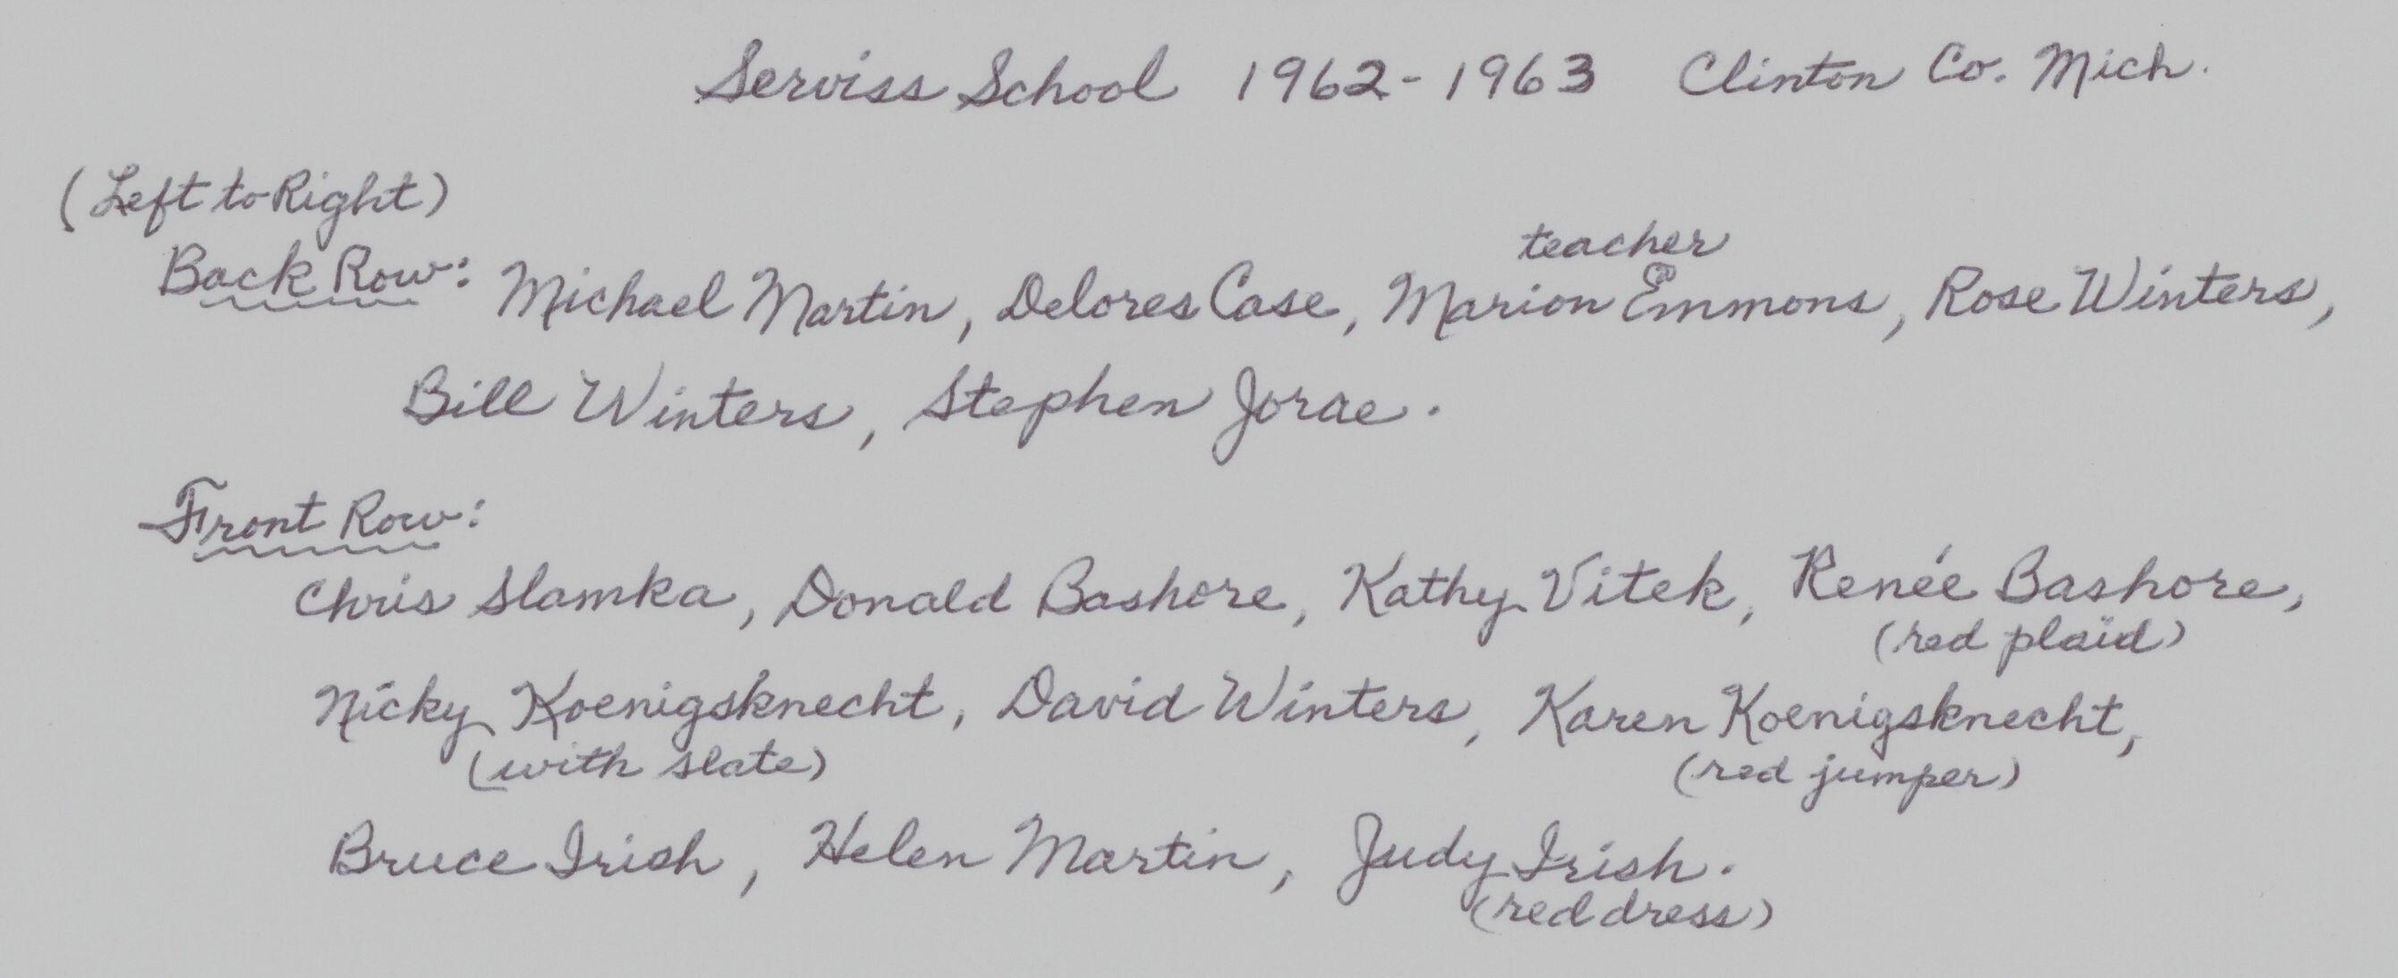 Serviss School 1962-1963 Clinton Co. Mich.
(Left to Right)
teacher
Back Row: Michael Martin, Delores Case, Marion Emmons, Rose Winters,
Bill Winters, Stephen Jorae.
Front Row:
Chris Slamka, Donald Bashore, Kathy Vitek, Renée Bashore,
(red plaid)
Nicky Koenigsknecht, David Winters, Karen Koenigsknecht,
(with slate) (red jumper)
Bruce Irish, Helen Martin, Judy Irish.
(red dress)